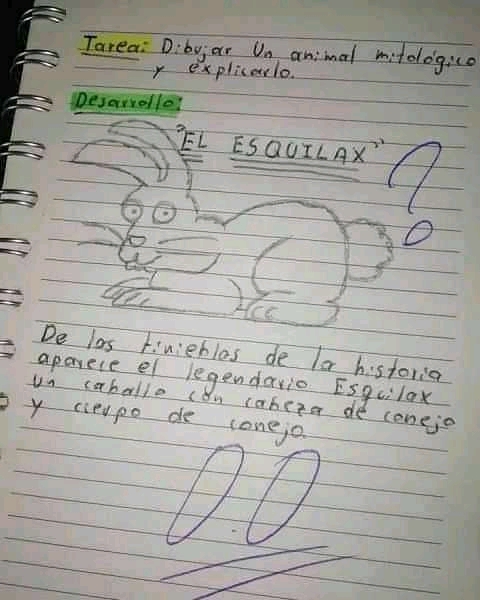 Tarea: Dibujar Un animal mitológico
y explicarlo.
Desarrollo:
"EL ESQUILAX"
?
De las tinieblas de la historia
aparece el legendario Esquilax
un caballo con cabeza de conejo
y cierpo de conejo.
0.0